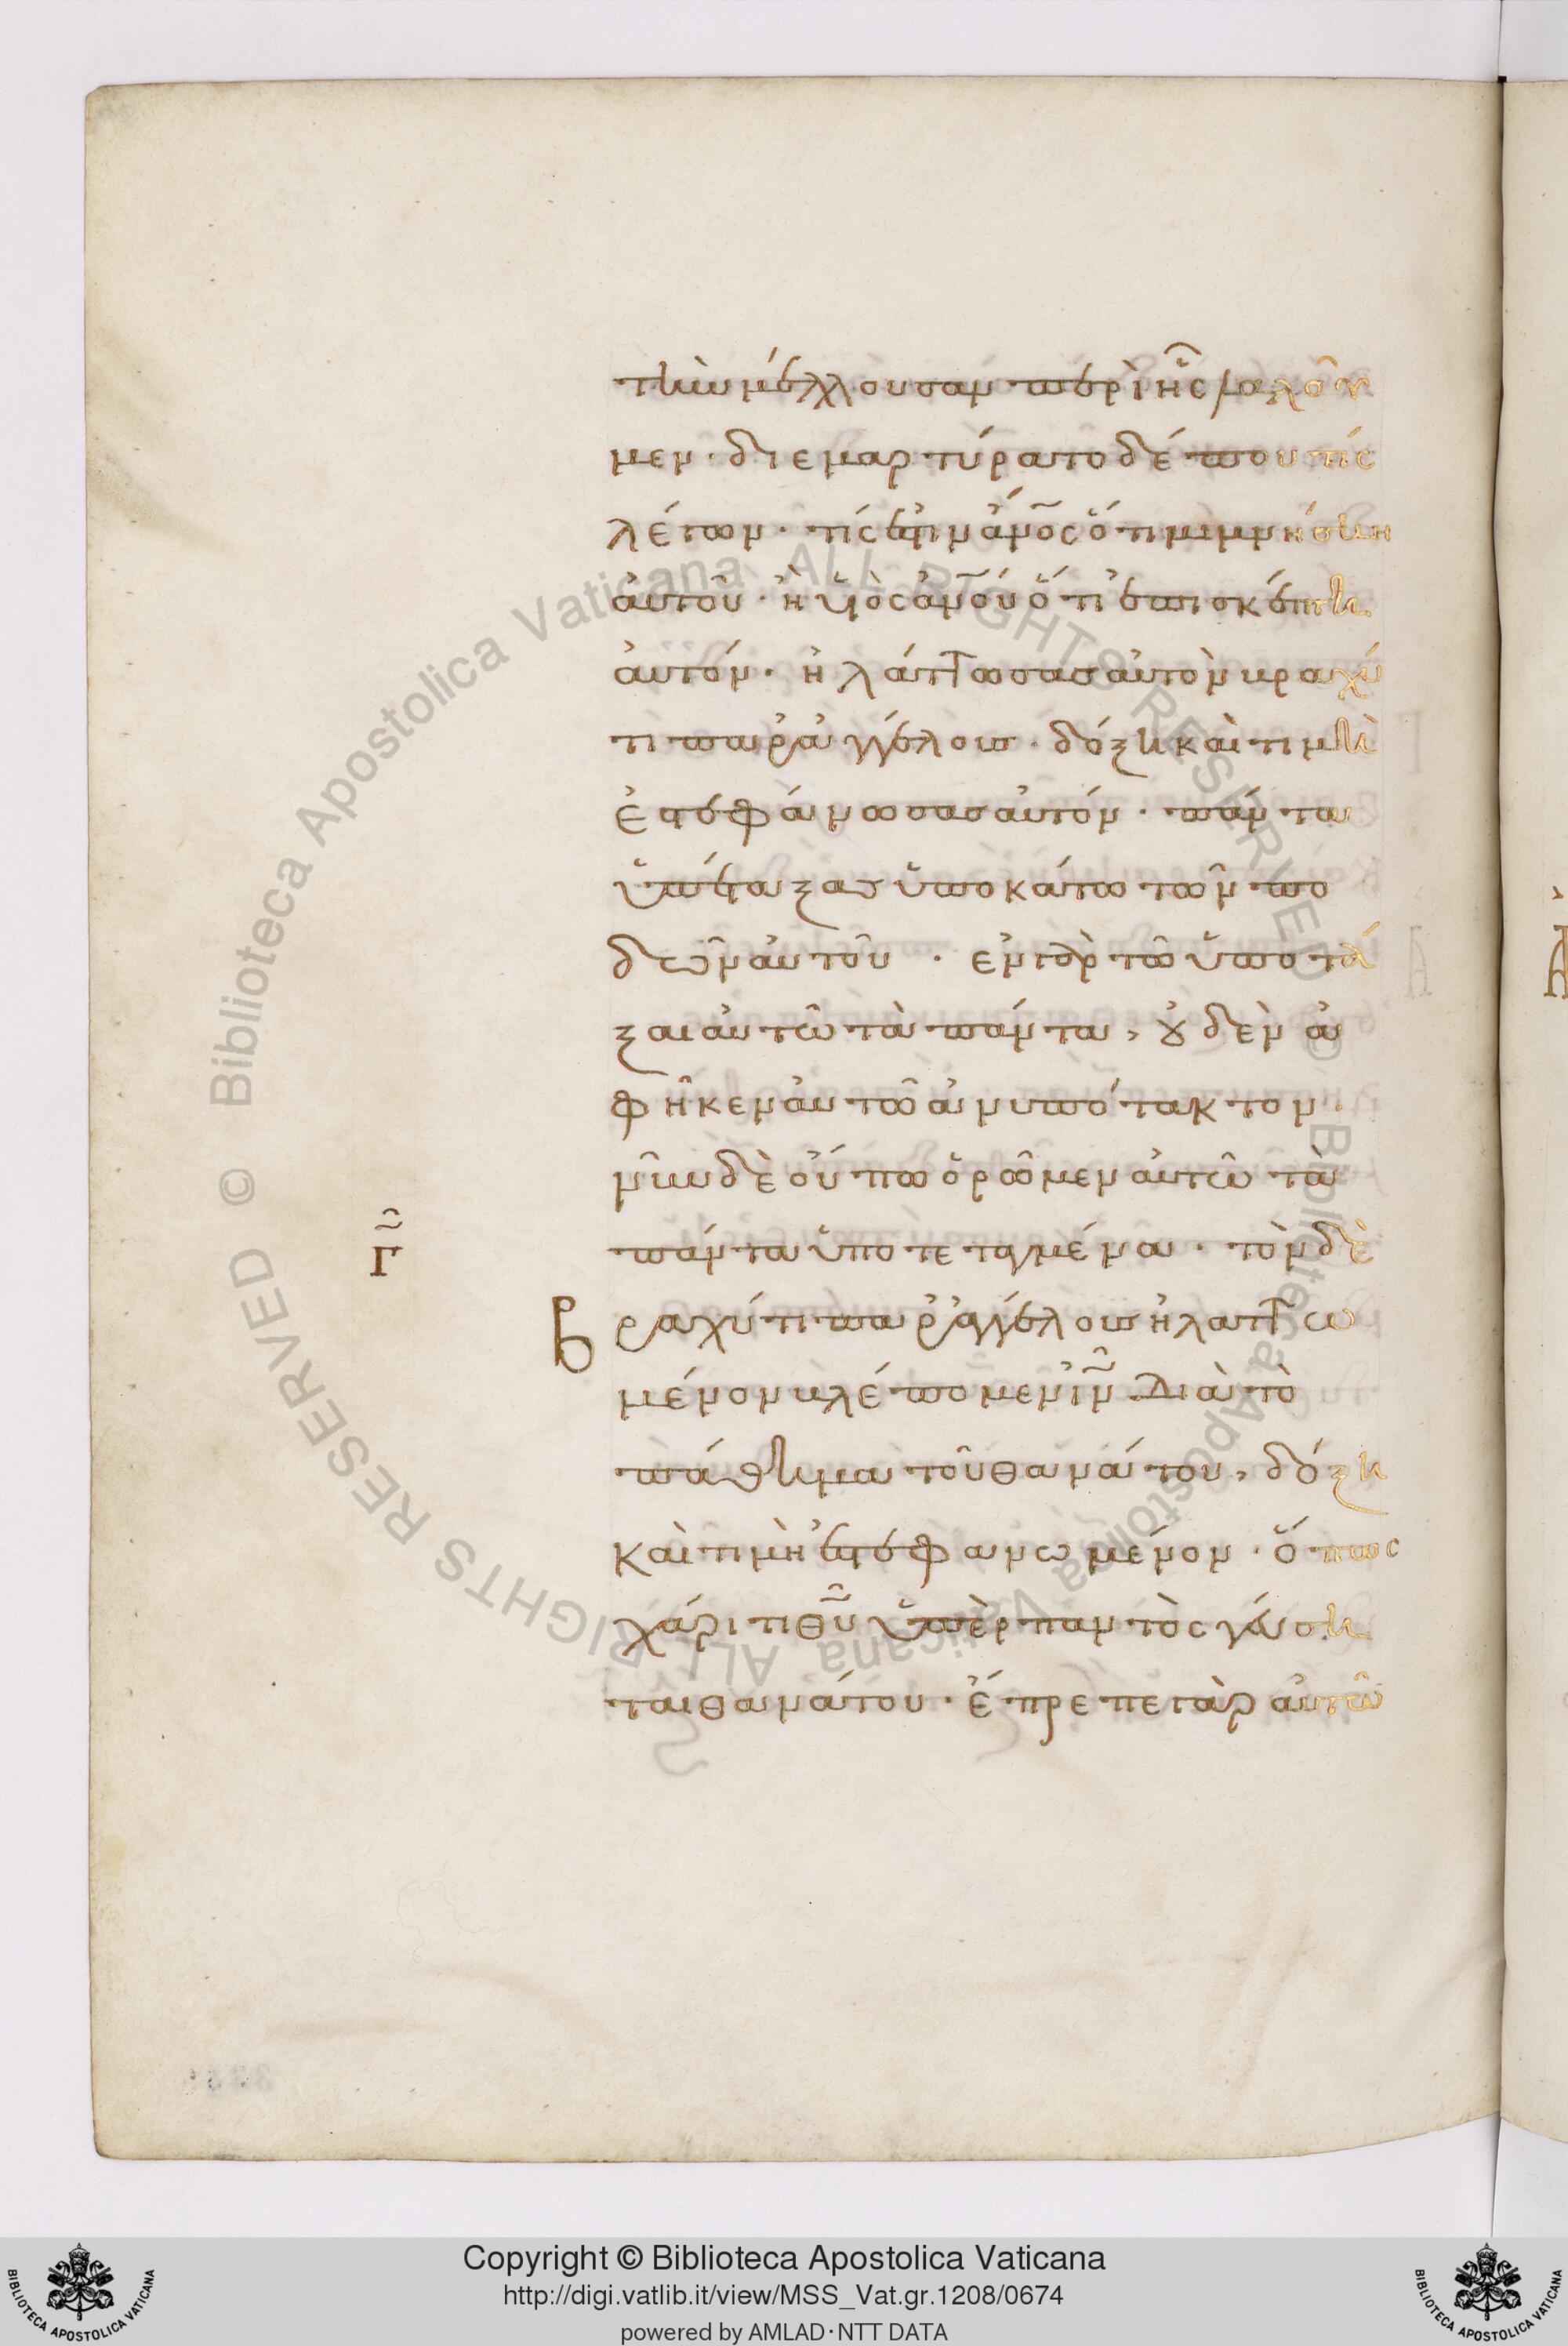 τὴν μέλλουσαν περὶ ἧς λαλοῦ
μεν· διεμαρτύρατο δέ που τίς
λέγων· τίς ἐστιν ἄν̅ο̅ς ὅτι μιμνήσκη
αὐτοῦ· ἢ υἱὸς ἀν̅ο̅υ ὅτι ἐπισκέπτη
αὐτόν· ἠλάττωσας αὐτὸν βραχύ
τι παρ' ἀγγέλους· δόξη καὶ τιμῆ
ἐστεφάνωσας αὐτόν· πάντα
ὑπέταξας ὑποκάτω τῶν πο
δῶν αὐτοῦ· ἐν γὰρ τῶ ὑποτά
ξαι αὐτῶ τὰ πάντα, οὐδὲν ἀ
φῆκεν αὐτῶ ἀνυπότακτον·
νῦν δὲ οὔπω ὁρῶμεν αὐτῶ τὰ
Γ πάντα ὑποτεταγμένα· τὸν δὲ
Βραχύ τι παρ' ἀγγέλους ἠλαττω
μένον βλέπομεν ι̅ν̅· Διὰ τὸ
πάθημα τοῦ θανάτου, δόξη
καὶ τιμῆ ἐστεφανωμένον· ὅπως
χάριτι θ̅υ̅ ὑπὲρ παντὸς γεύση
ται θανάτου· ἔπρεπε γὰρ αὐτῶ
Biblioteca Apostolica Vaticana ALL RIGHTS RESERVED ©
Copyright © Biblioteca Apostolica Vaticana
http://digi.vatlib.it/view/MSS_Vat.gr.1208/0674
powered by AMLAD·NTT DATA
BIBLIOTECA APOSTOLICA VATICANA
BIBLIOTECA APOSTOLICA VATICANA